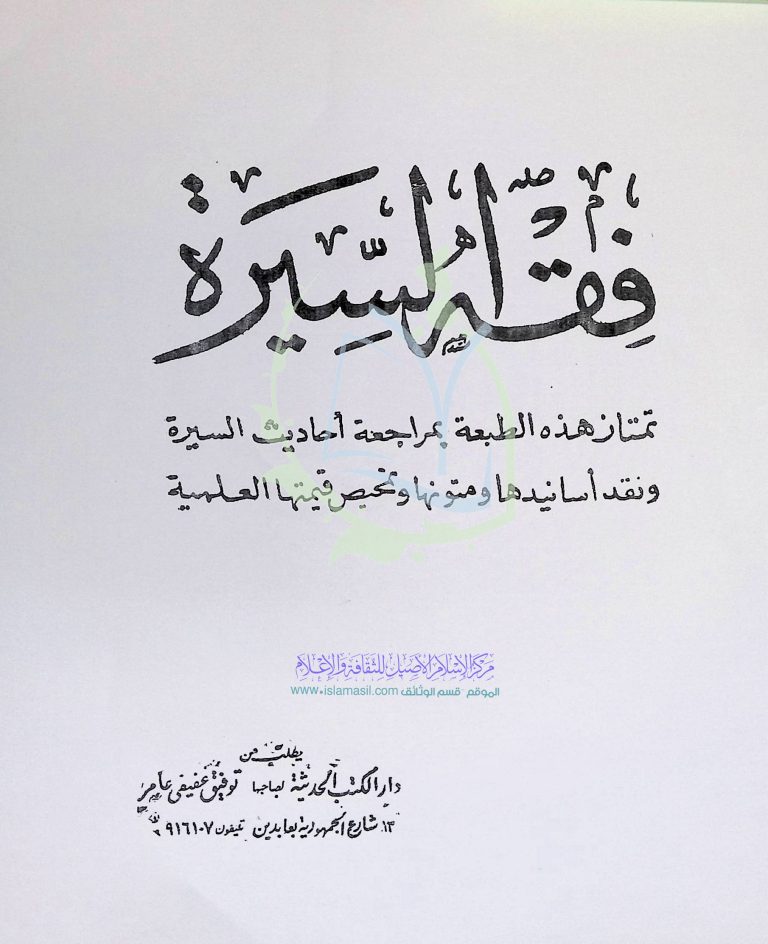 فِقْهُ السِّيرَة
تمتاز هذه الطبعة بمراجعة أحاديث السيرة
ونقد أسانيدها ومتونها وتمحيص قيمتها العلمية
مركز الإسلام الأصيل للثقافة والإعلام
الموقع - قسم الوثائق www.islamasil.com
يطلب من
دار الكتب الحديثة لصاحبها توفيق عفيفى عامر
١٤ شارع الجمهورية بعابدين تليفون ٩١٦١٠٧